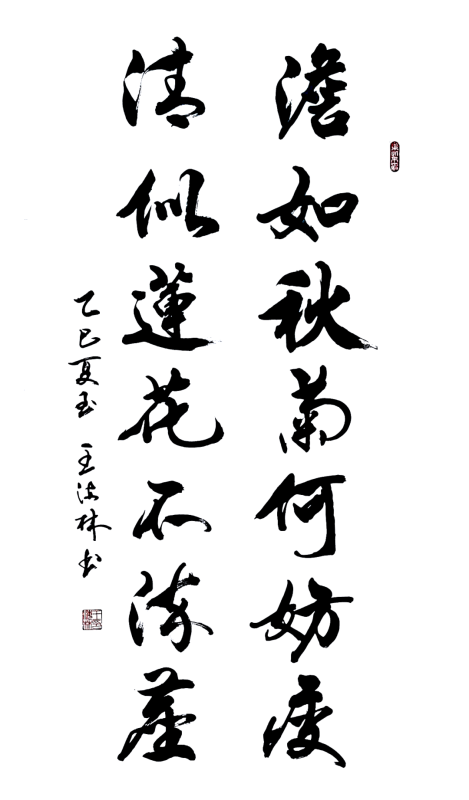 澹如秋菊何妨瘦
清似蓮花不染塵
乙巳夏至 王法林书